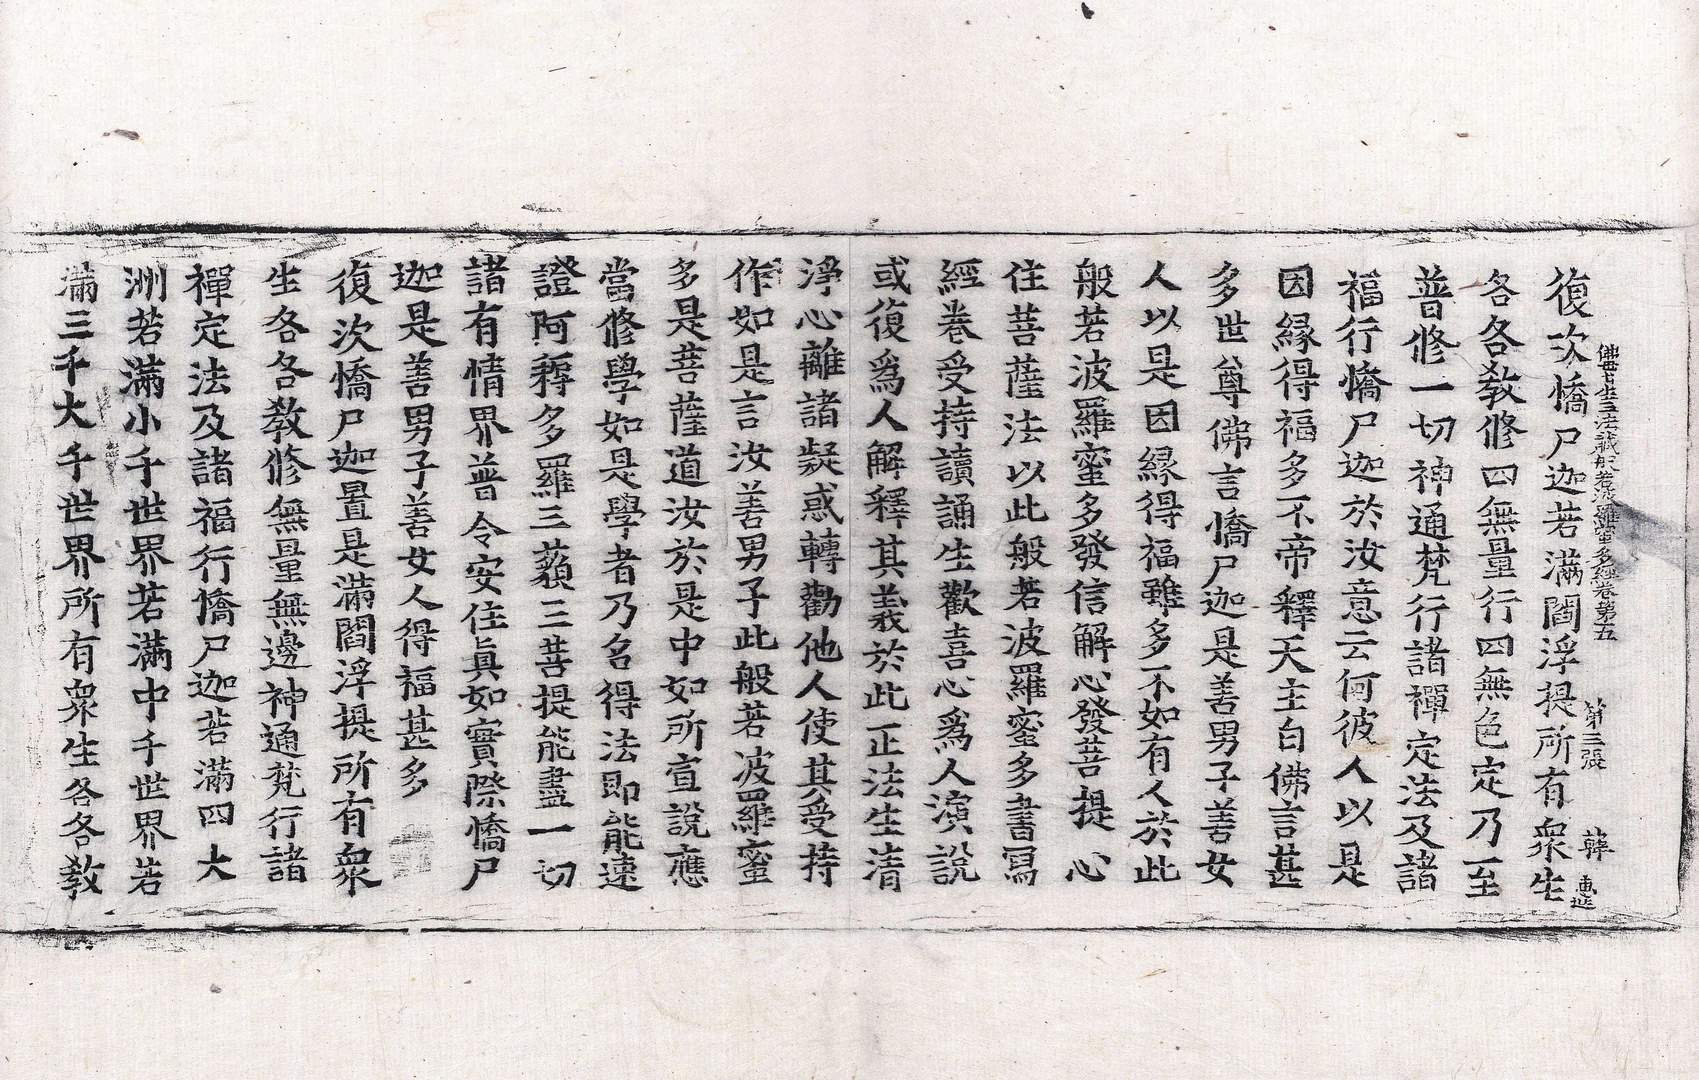 佛母出生三法藏般若波羅蜜多經卷第五 第三張 韓 惠莚
復次憍尸迦若滿閻浮提所有衆生
各各敎修四無量行四無色定乃至
普修一切神通梵行諸禪定法及諸
福行憍尸迦於汝意云何彼人以是
因縁得福多不帝釋天主白佛言甚
多世尊佛言憍尸迦是善男子善女
人以是因縁得福雖多不如有人於此
般若波羅蜜多發信解心發菩提心
住菩薩法以此般若波羅蜜多書寫
經卷受持讀誦生歡喜心爲人演說
或復爲人解釋其義於此正法生清
淨心離諸疑惑轉勸他人使其受持
作如是言汝善男子此般若波羅蜜
多是菩薩道汝於是中如所宣說應
當修學如是學者乃名得法即能速
證阿耨多羅三藐三菩提能盡一切
諸有情界普令安住眞如實際憍尸
迦是善男子善女人得福甚多
復次憍尸迦置是滿閻浮提所有衆
生各各敎修無量無邊神通梵行諸
禪定法及諸福行憍尸迦若滿四大
洲若滿小千世界若滿中千世界若
滿三千大千世界所有衆生各各敎